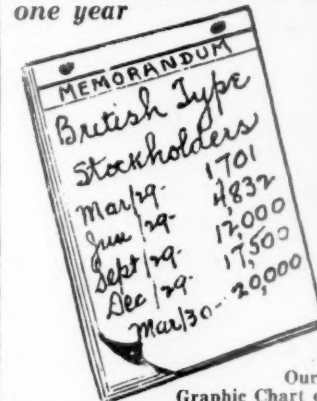 one year
MEMORANDUM
British Type
Stockholders
Mar/29- 1701
Jun/29- 4,832
Sept/29- 12,000
Dec/29- 17,500
Mar/30- 20,000
Our
Graphic Chart